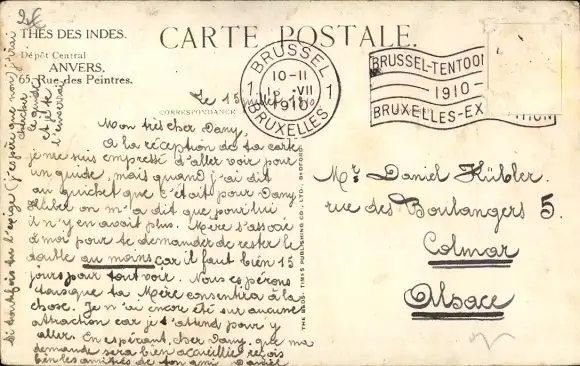 THÉS DES INDES.
Dépôt Central
ANVERS,
65, Rue des Peintres.
CARTE POSTALE.
CORRESPONDANCE
BRUSSEL
1 10-11 1
15 VII
1910
BRUXELLES
BRUSSEL-TENTOO
1910
BRUXELLES-EX
Le 15 juillet
Mon très cher Dany,
A la réception de ta carte
je me suis empressé d'aller voir pour
un guide, mais quand j'ai dit
au guichet que c'était pour Dany
on m'a dit que pour lui
il n'y en avait plus. Mère s'associe
à moi pour te demander de rester le
double au moins car il faut bien 15
jours pour tout voir. Nous espérons
que ta Mère consentira à la
chose. Je n'ai encore été sur aucune
attraction car je t'attend pour y
aller. En espérant, cher Dany, que ma
demande sera bien accueillie reçois
bien les amitiés de ton ami
si toutefois tu l'exige (j'espère que non) j'irai
chercher
le guide
et je te
l'enverrai
THE BROS. TIMES PUBLISHING CO., LTD.
Mr. Daniel Kübler.
rue des Boulangers 5.
Colmar
Alsace